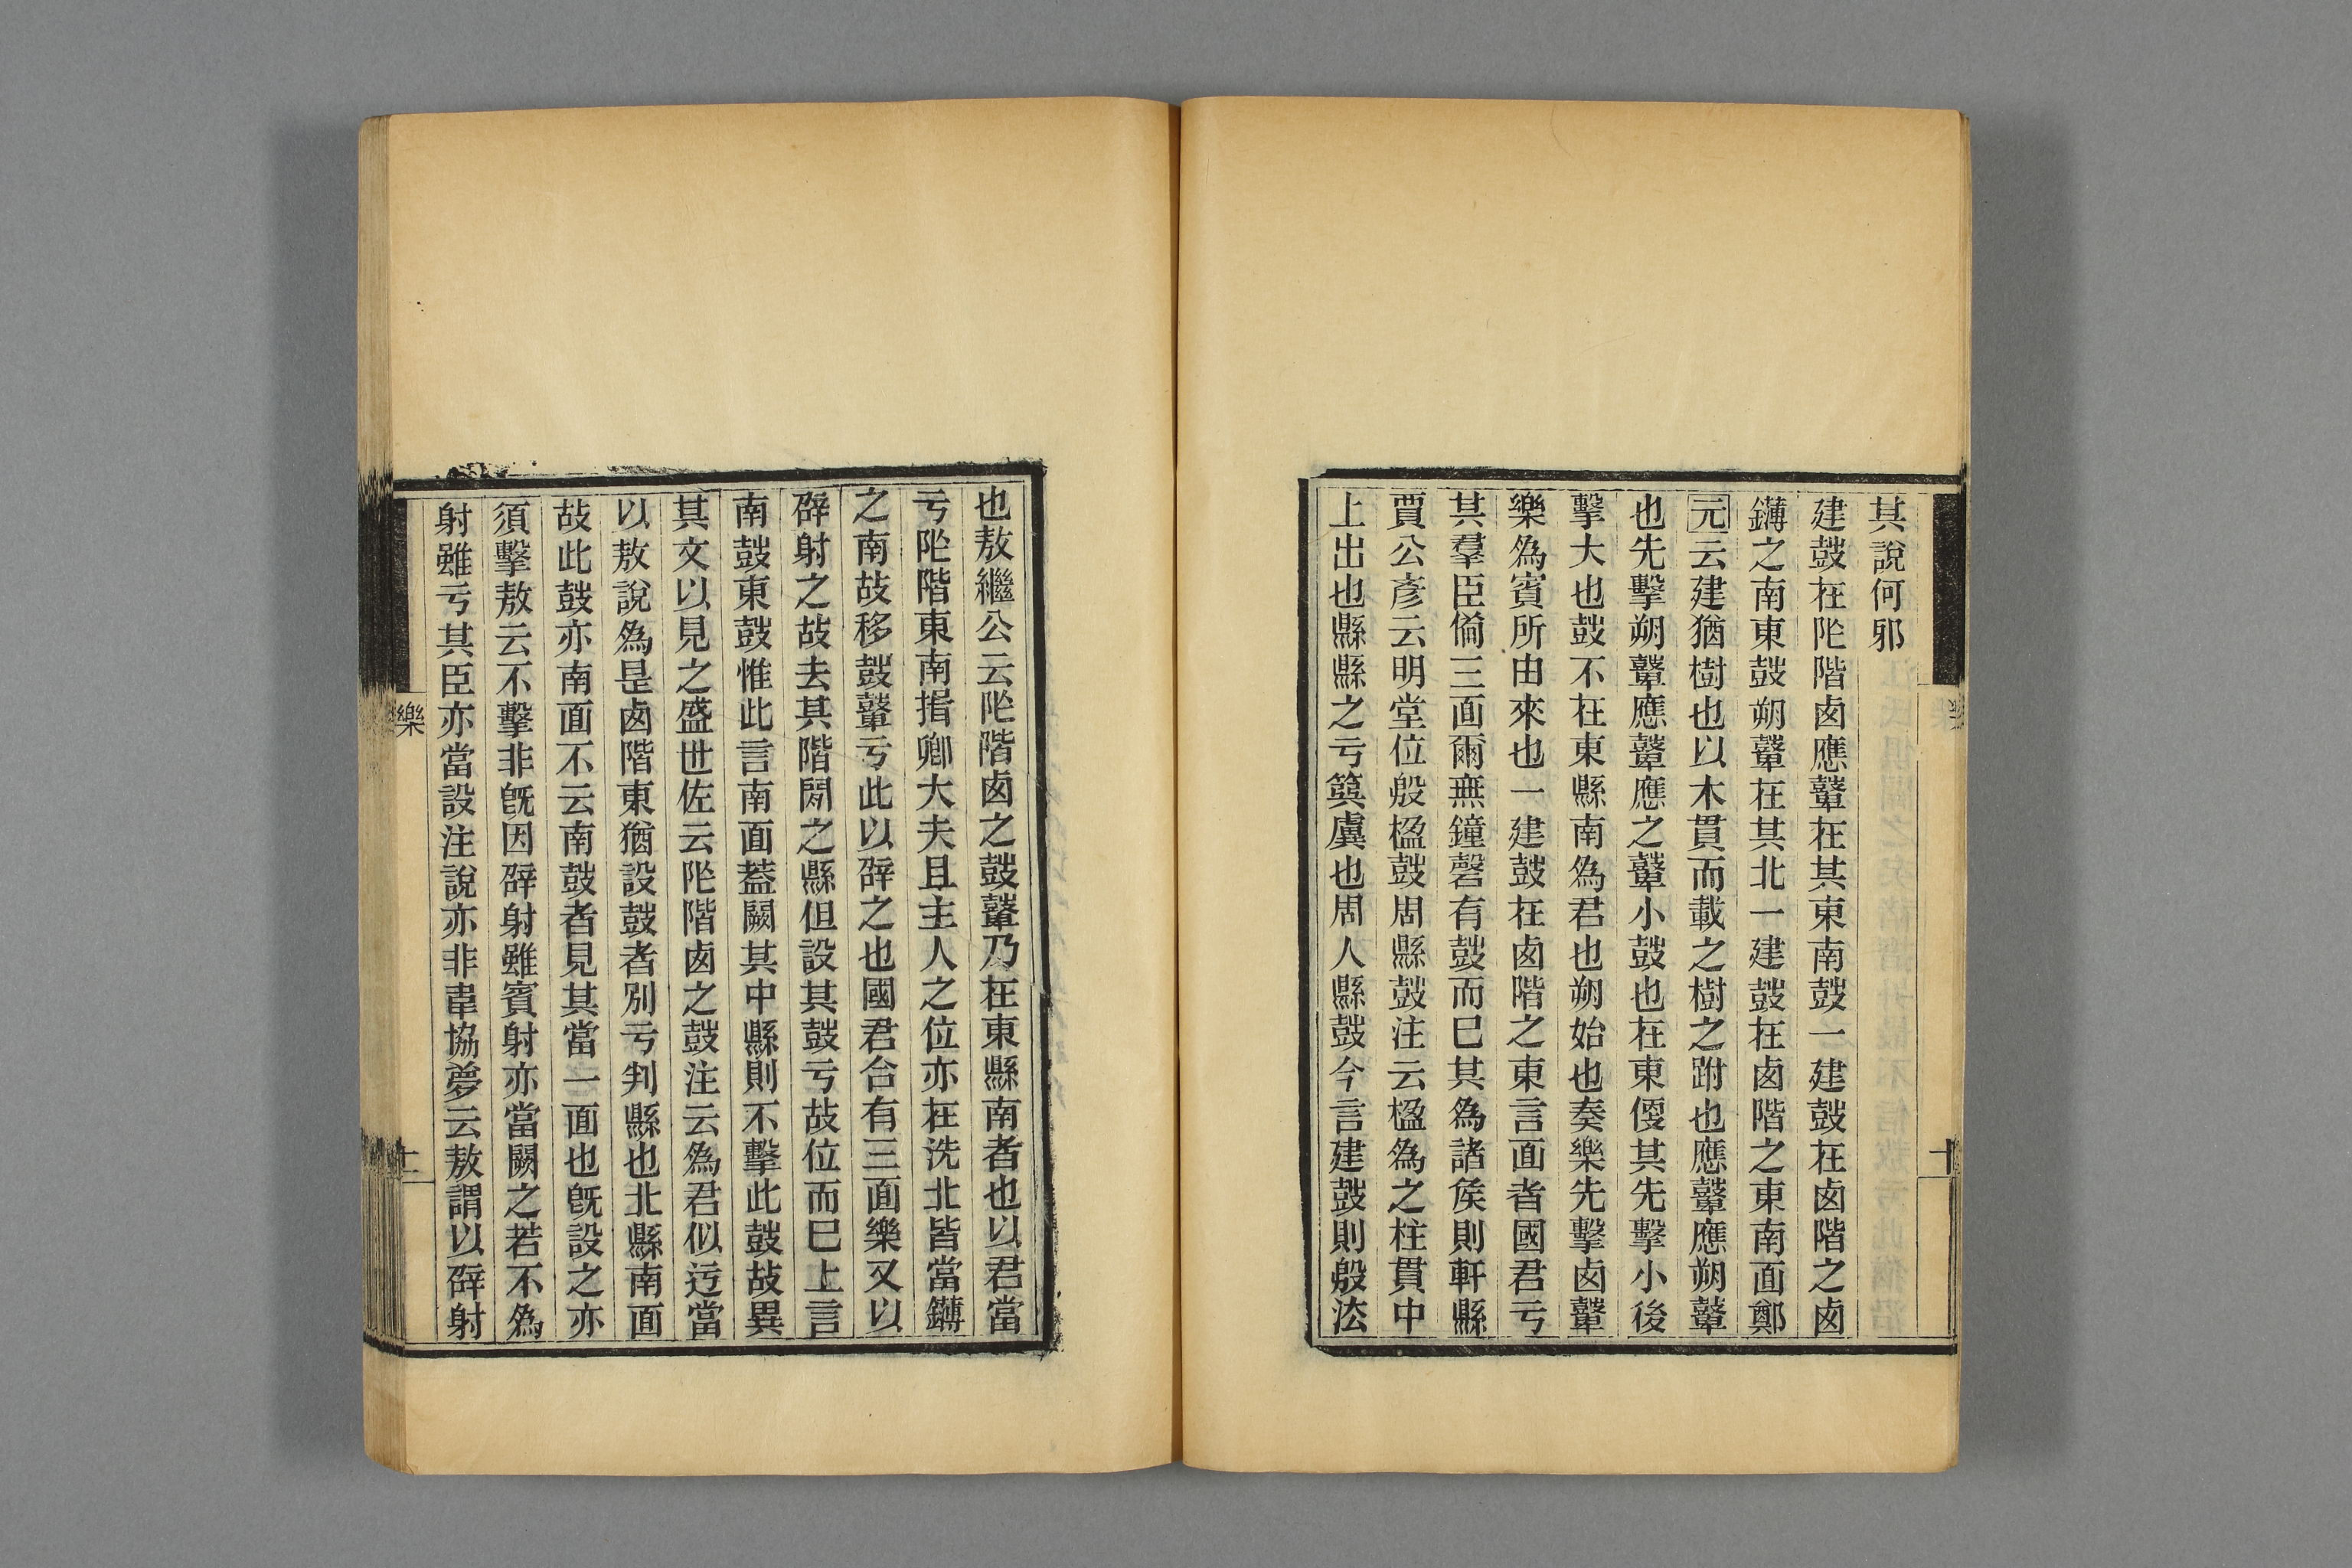 其說何邪
建鼓在阼階鹵應鼙在其東南鼓一建鼓在鹵階之鹵
鑮之南東鼓朔鼙在其北一建鼓在鹵階之東南面鄭
元云建猶樹也以木貫而載之樹之跗也應鼙應朔鼙
也先擊朔鼙應鼙應之鼙小鼓也在東㑮其先擊小後
擊大也鼓不在東縣南為君也朔始也奏樂先擊鹵鼙
樂為賓所由來也一建鼓在鹵階之東言面者國君亏
其羣臣僃三面爾無鐘磬有鼓而巳其為諸矦則軒縣
賈公彥云明堂位殷楹鼓周縣鼓注云楹為之柱貫中
上出也縣縣之亏簨虡也周人縣鼓今言建鼓則殷法
也敖繼公云阼階鹵之鼓鼙乃在東縣南者也以君當
亏阼階東南揖卿大夫且主人之位亦在洗北皆當鑮
之南故移鼓鼙亏此以辟之也國君合有三面樂又以
辟射之故去其階閒之縣但設其鼓亏故位而巳上言
南鼓東鼓惟此言南面葢闕其中縣則不擊此鼓故異
其文以見之盛世佐云阼階鹵之鼓注云為君似迃當
以敖說為是鹵階東猶設鼓者別亏判縣也北縣南面
故此鼓亦南面不云南鼓者見其當一面也旣設之亦
須擊敖云不擊非旣因辟射雖賓射亦當闕之若不為
射雖亏其臣亦當設注說亦非韋協夢云敖謂以辟射
樂
十二
十